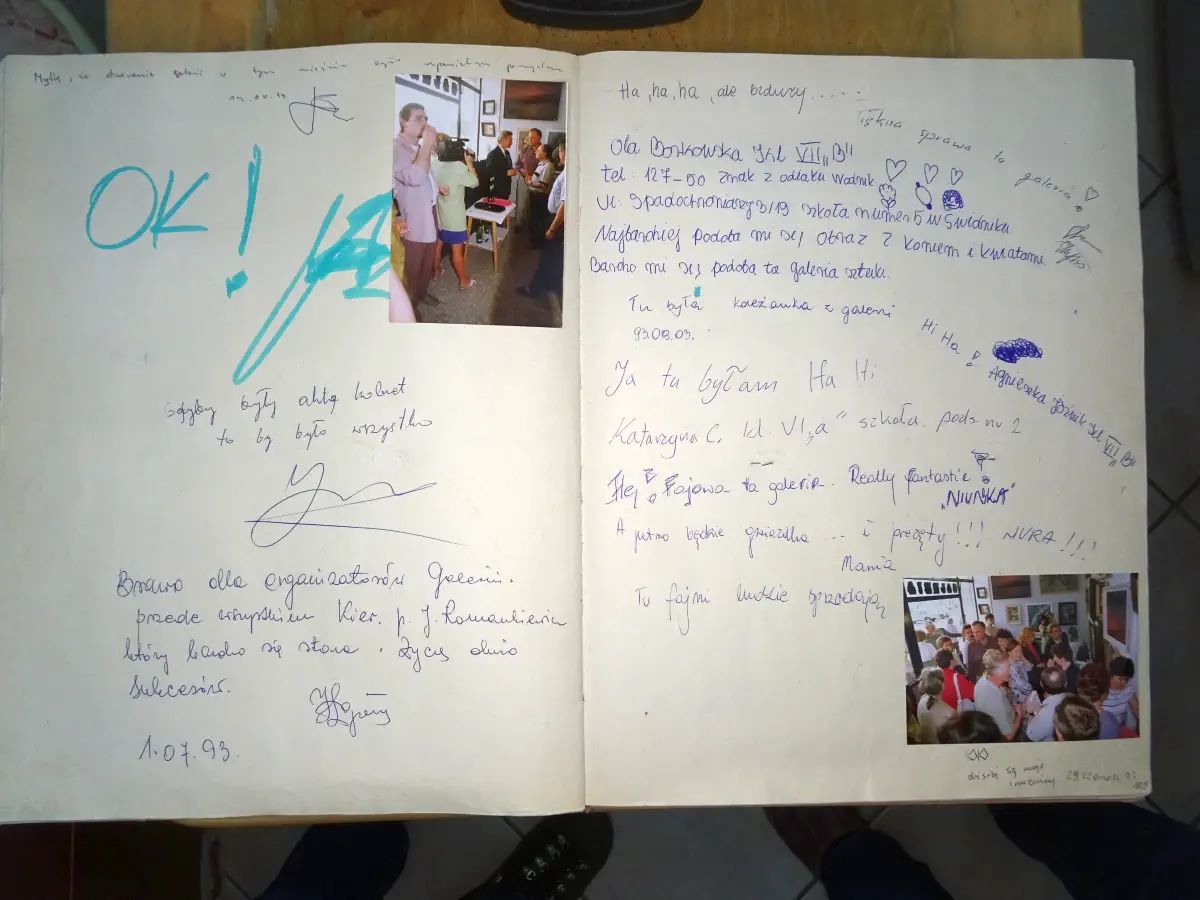 Myślę, że otworzenie galerii w tym mieście było
OK!
Gdyby były akty kobiet
to by było wszystko
Brawo dla organizatorów Galerii.
przede wszystkiem Kier. p. J. Romankiewicz
który bardzo się stara. Życzę dużo
sukcesów.
1.07.93.
Ha, ha, ha, ale bzdury.....
Piękna sprawa ta
galeria
Ola Borkowska Kl VII „B"
tel: 127-50 znak z odiaku wodnik
Ul. Spadochroniarzy 3/19 szkoła numer 5 w Świdniku
Najbardziej podoba mi się obraz z koniem i kwiatami
Bardzo mi się podoba ta galeria sztuki.
Tu była koleżanka z galerii
93.08.03.
Hi Ha!
Agnieszka Kl VII B"
Ja tu byłam Ha Hi
Katarzyna C. kl. VI „a" szkoła pods. nr 2
Hej! Fajowa ta galeria. Really fantastic!
"NIUŃKA"
A jutro będzie gwiazdka ... i prezęty!!! NURA!!!
Mania
Tu fajni ludzie sprzedają
29 czerwca 93